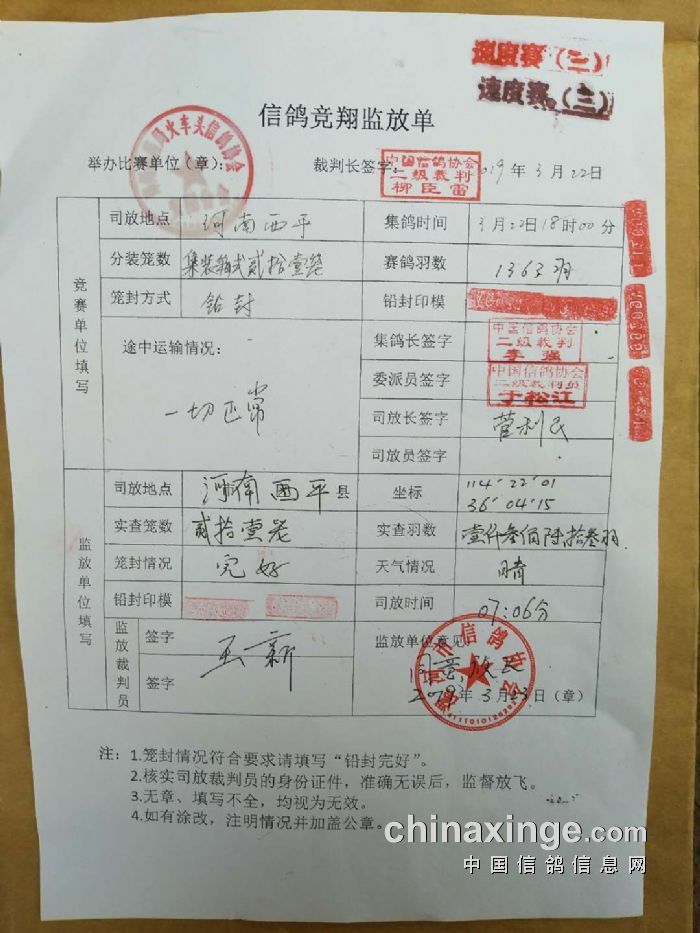 速度赛（二）
速度赛（三）
信鸽竞翔监放单
火车头信鸽协会
举办比赛单位（章）：
裁判长签字：
中国信鸽协会
二级裁判
柳臣雷
2019年3月22日
竞赛单位填写
司放地点 河南西平 集鸽时间 3月22日18时00分
分装笼数 集装箱式贰拾壹笼 赛鸽羽数 1363羽
笼封方式 铅封 铅封印模
途中运输情况：
一切正常
集鸽长签字
中国信鸽协会
二级裁判
李强
委派员签字
中国信鸽协会
二级裁判员
于松江
司放长签字 菅利民
司放员签字
监放单位填写
司放地点 河南西平县 坐标 114°22′01
36°04′15
实查笼数 贰拾壹笼 实查羽数 壹仟叁佰陆拾叁羽
笼封情况 完好 天气情况 晴
铅封印模 司放时间 07:06分
监放裁判员
签字 王新
签字
监放单位意见
市信鸽协会
同意放飞
2019年3月23日（章）
注：1.笼封情况符合要求请填写“铅封完好”。
2.核实司放裁判员的身份证件，准确无误后，监督放飞。
3.无章、填写不全，均视为无效。
4.如有涂改，注明情况并加盖公章。
chinaxinge.com
中国信鸽信息网